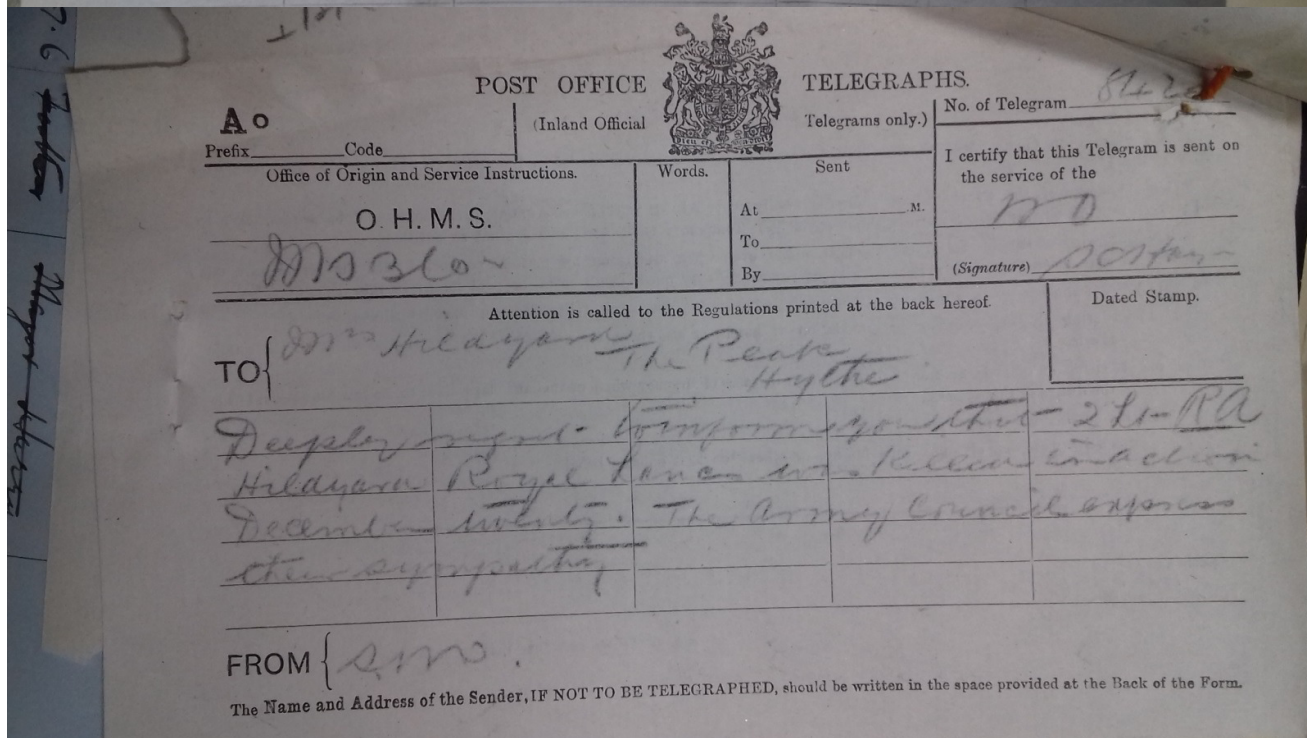 POST OFFICE TELEGRAPHS.
A o
(Inland Official Telegrams only.)
No. of Telegram
Prefix Code
I certify that this Telegram is sent on
the service of the
Office of Origin and Service Instructions.
Words.
Sent
O.H.M.S.
At .M.
To
By
(Signature)
Attention is called to the Regulations printed at the back hereof.
Dated Stamp.
TO
Mrs Hildyard The Peak
Hythe
Deeply regret to inform you that 2 Lt RA
Hildyard Royal Lancs was killed in action
December twenty. The Army Council express
their sympathy
FROM
The Name and Address of the Sender, IF NOT TO BE TELEGRAPHED, should be written in the space provided at the Back of the Form.